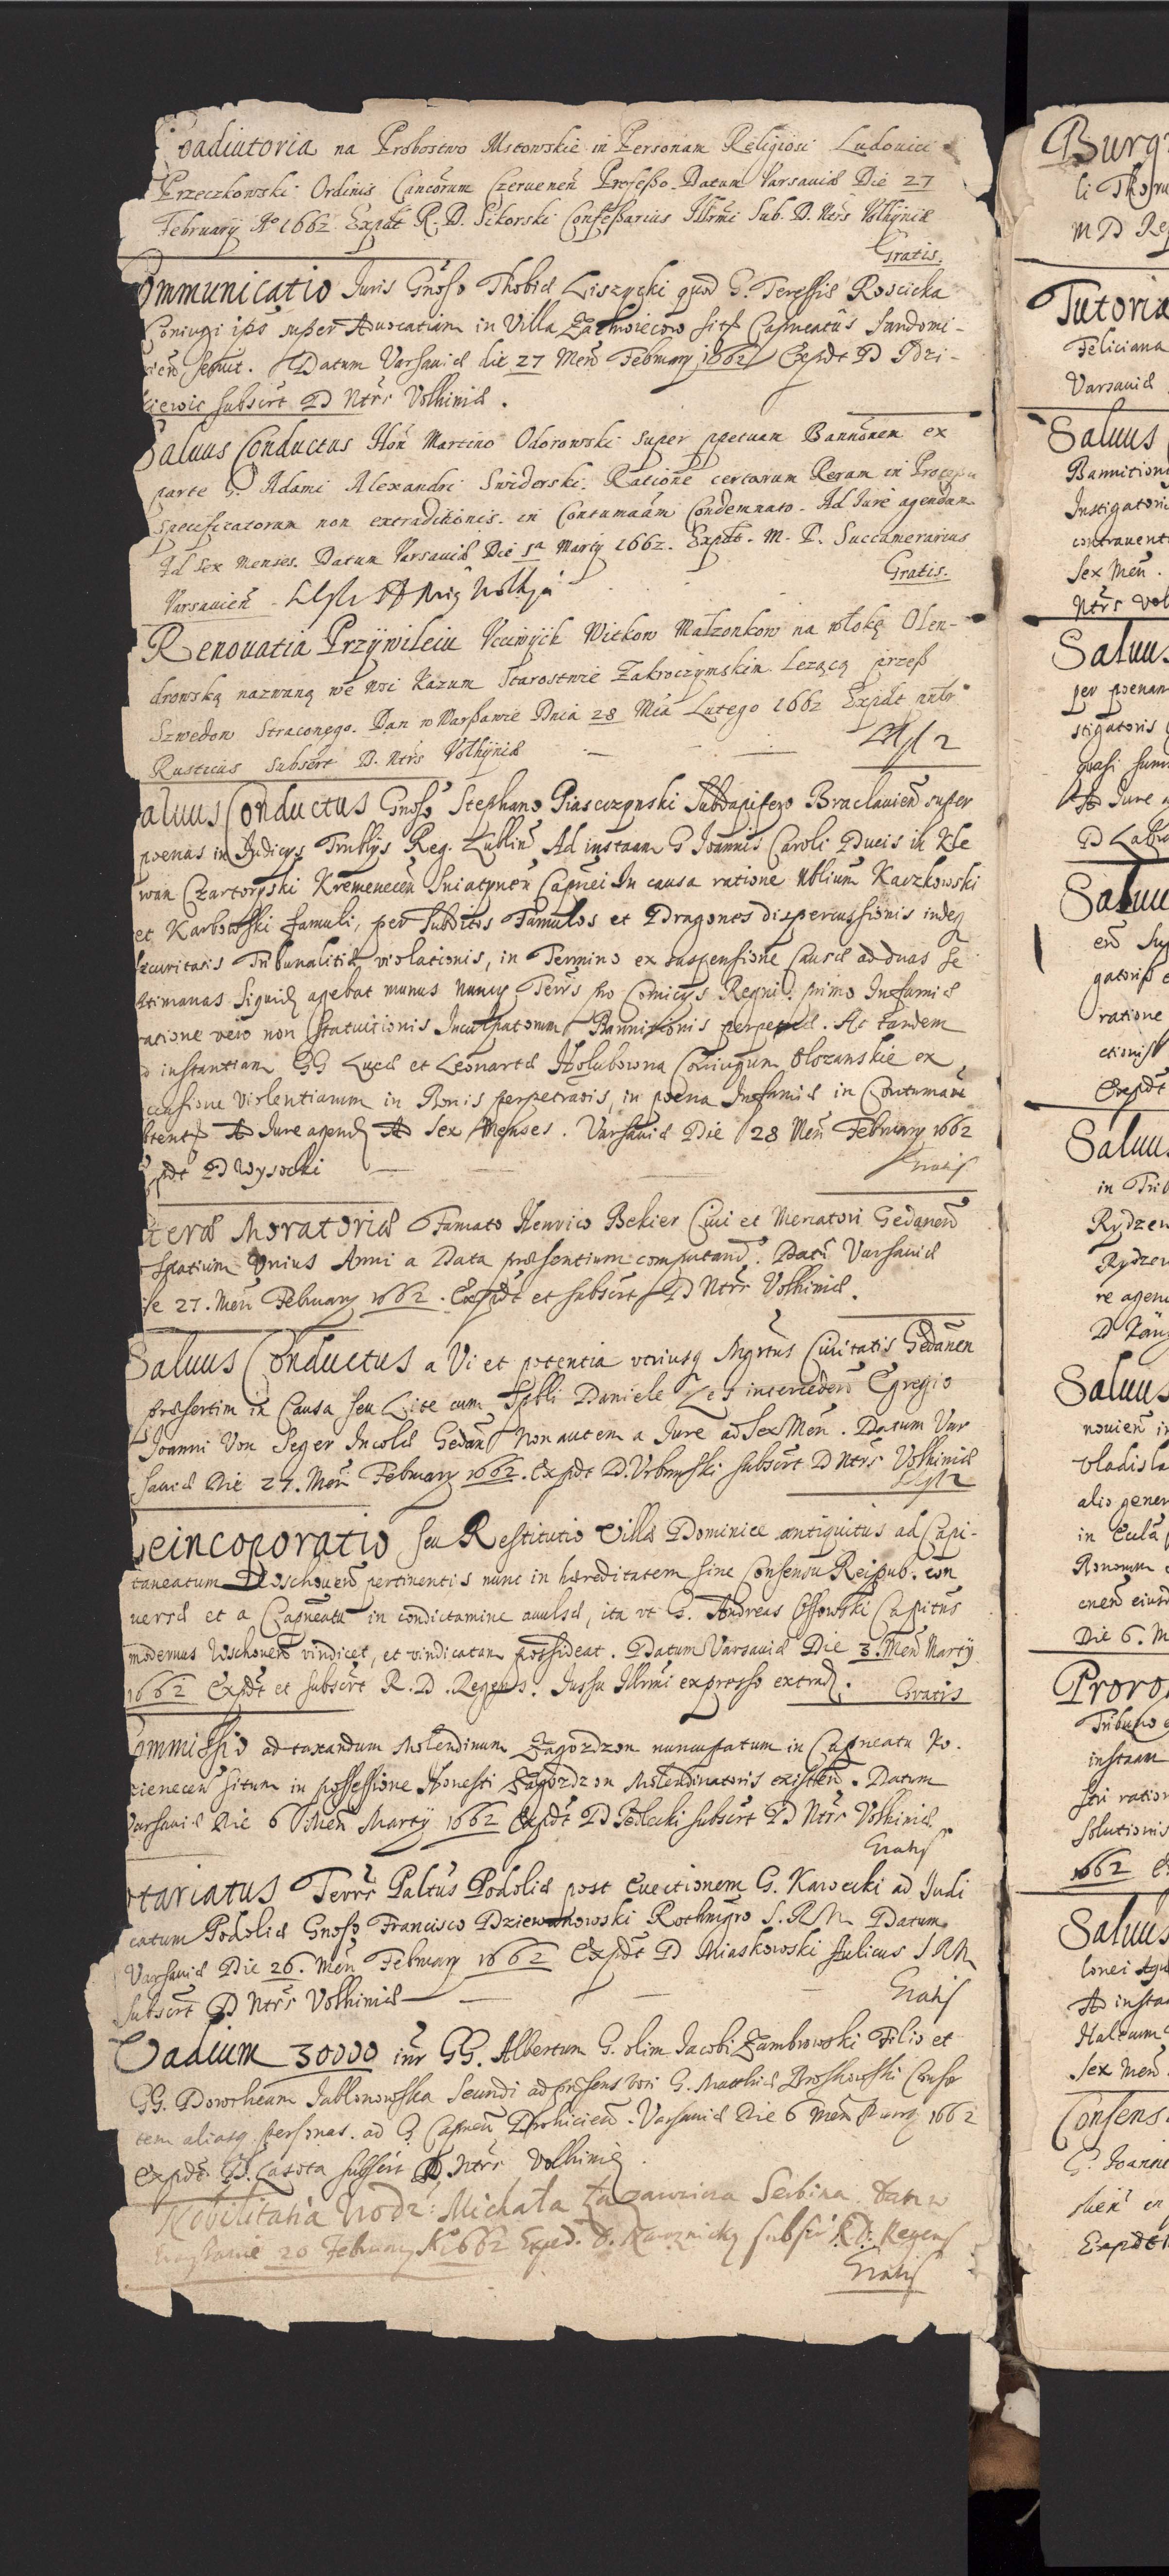 Coadiutoria na Probostwo Mstowskie in Personam Religiosi Ludouici
Przeczkowski Ordinis Cancorum Czeruenen Professo. Datum Varsauiæ Die 27
February Aº 1662. Expdt R. D. Sikorski Confessarius Illrmi Sub. D. Ntrs Volhyniæ
Gratis.
Communicatio Juris Gnoso Thobiæ Liszycki quod G. Teressiæ Roscicka
Coniugi ips super Aduocatiam in Villa sitß Capneatus Sandomi-
rien seruit. Datum Varsauiæ die 27 Men February 1662 Expdt D
subscrt D Ntrs Volhiniæ.
Saluus Conductus Hon Martino Odorowski super ppetuam Bannonem ex
parte G. Adami Alexandri Swiderski. Ratione certarum Rerum in
specificatorum non extraditionis. in Contumaam Condemnato. Ad Jure agendum
Ad sex Menses. Datum Varsauiæ Die 1a Marty 1662. Expdt. M. D. Succamerarius
Gratis.
Varsauien
Renouatia Przÿwileiu Vcciwÿch Witkow Małzonkow na włokę Olen-
drowską nazwaną we wsi Kazum Starostwie Zakroczymskim Lezącą przeß
Szwedow straconego. Dan w Warßawie Dnia 28 Mia Lutego 1662 Expdt
Rusticus subscrt D. Ntrs Volhÿniæ
Saluus Conductus Gnoso Stephano Piasczynski Subdapifero Braclauien super
poenas in Judicys Trnblys Reg. Lublin Ad instaam G Joannis Caroli Ducis in Kle
wan Czartoryski Kremenecen Sniatynen Capnei In causa ratione Nblium Kaczkowski
et famuli, per Subditos Famulos et Dragones dispercussionis indeq
securitatis Tribunalitiæ violationis, in Termino ex suspensione causæ ad duas se
ptimanas Siquid agebat munus Nuncy Terrs pro Comicys Regni. primo Infamiæ
ratione vero non statuitionis Inculpatorum Bannitionis perpetuæ. Ac tandem
ad instantiam GG Lucæ et Leonartæ Holubowna Coniugum Olozanskie ex
occasione violentiarum in Bonis perpetratis, in poena Infamiæ in Contumam
obtentß Ad Jure agend Ad Sex Menses. Varsauiæ Die 28 Men February 1662
Expdt D Wysocki
Gratis
Literæ Moratoriæ Famato Henrico Bekier Ciui et Mercatori Gedanen
spatium Vnius Anni a Data præsentium computand. Dat Varsauiæ
die 27. Men February 1662. Expdt et subscrt D Ntrs Volhiniæ.
Saluus Conductus a Vi et potentia vtriusq Mgrtus Ciuitatis Gedanen
præsertim in Causa seu Lite cum Spbli Daniele interceden Egregio
Joanni Von Seger Incolæ Gedan Non autem a Jure ad Sex Men. Datum Var
sauiæ Die 27. Men February 1662. Expdt D. Vrbanski subscrt D Ntrs Volhiniæ
Reincoporatio seu Restitutio Villæ Dominice antiquitus ad Capi-
taneatum Wschouen pertinentis nunc in hæreditatem sine Consensu Reipub. con
uersæ et a Capneatu in condictamine auulsæ, ita vt G. Andreas Ossowski Capitns
modernus Wschouen vindicet, et vindicatam possideat. Datum Varsauiæ Die 3. Men Martÿ
1662 Expdt et subscrt R. D. Regens. Jussu Illrmi expresso extrad. Gratis
Commissio ad taxandum Molendinum Zagozdzon nuncupatum in Capneatu Ko.
zienecen situm in possessione Honesti Zagozdzon Molendinatoris existen. Datum
Varsauiæ Die 6 Men Martÿ 1662 Expdt D subscrt D Ntrs Volhiniæ
Gratis
Notariatus Terrs Paltus Podoliæ post Euectionem G. Kawecki ad Judi
catum Podoliæ Gnoso Francisco Dziewanowski Rothmgro S. R M Datum
Varsauiæ Die 26. Men February 1662 Expdt D Miaskowski Aulicus S R M
subscrt D Ntrs Volhiniæ Gratis
Vadium 30000 inr GG. Albertum G. olim Jacobi Zambrowski Filio et
GG. Dorotheam Jablonowska Secundi ad præsens vori G. Matthiæ Conso
tem aliasq personas. ad G Capnen Drohicien. Varsauiæ Die 6 Men Marty 1662
Expdt. D. Lasota subscrt D. Ntrs Volhiniæ
Nobilitatia Vrodz: Michała Serbina Datu w
Warszawie 20 February Aº 1662 Exped. D. subscr R. D. Regens
Gratis
Burg
m D
Tutoria
Feliciana
Varsauiæ
Saluus
Bannitioni
Instigatori
contrauent
Sex Men.
Ntrs Vol
Saluus
per poenam
stigatoris
quasi
Ad Jure a
Saluu
gatoris
ratione
Expdt
Saluu
in Trib
Rydzew
Rydzew
re agen
Saluus
nouien in
Vladisla
alio gener
Die 6. M
Proro
instaam
sti ration
solutionis
1662
Saluus
Ad insta
Sex Men
Consens
G. Joanne
Expdt